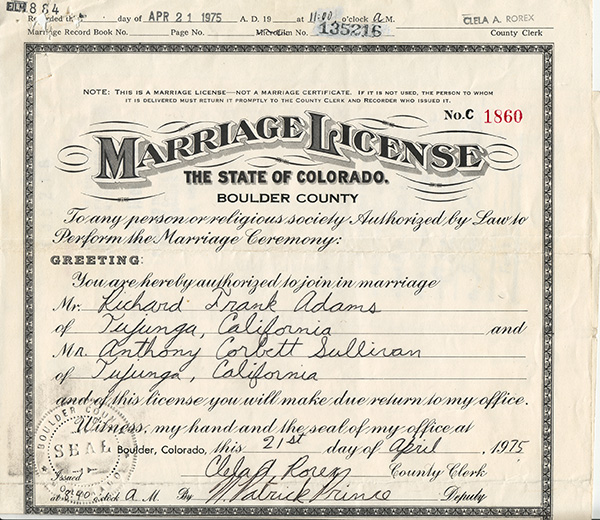 1884
Recorded the day of APR 21 1975 A. D. 19 at 11:00 o'clock A.M. CLELA A. ROREX
Marriage Record Book No. Page No. Microfilm No. 135216 County Clerk
NOTE: THIS IS A MARRIAGE LICENSE—NOT A MARRIAGE CERTIFICATE. IF IT IS NOT USED, THE PERSON TO WHOM
IT IS DELIVERED MUST RETURN IT PROMPTLY TO THE COUNTY CLERK AND RECORDER WHO ISSUED IT.
No. C 1860
MARRIAGE LICENSE
THE STATE OF COLORADO.
BOULDER COUNTY
To any person or religious society Authorized by Law to
Perform the Marriage Ceremony:
GREETING:
You are hereby authorized to join in marriage
Mr. Richard Frank Adams
of Tujunga, California and
Mr. Anthony Corbett Sullivan
of Tujunga, California
and of this license you will make due return to my office.
Witness, my hand and the seal of my office at
Boulder, Colorado, this 21st day of April, 1975
BOULDER COUNTY
SEAL
Clela Rorex County Clerk
Issued
at o'clock A. M. By W. Patrick Prince Deputy